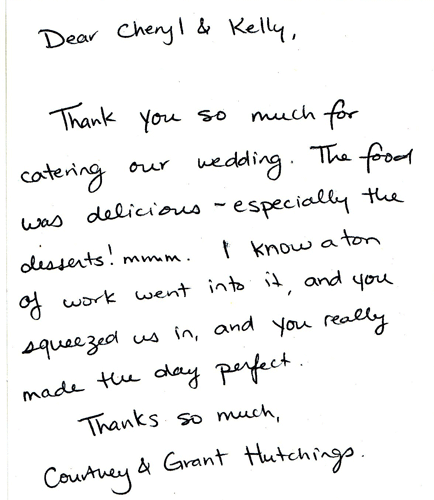 Dear Cheryl & Kelly,
Thank you so much for
catering our wedding. The food
was delicious - especially the
desserts! mmm. I know a ton
of work went into it, and you
squeezed us in, and you really
made the day perfect.
Thanks so much,
Courtney & Grant Hutchings.